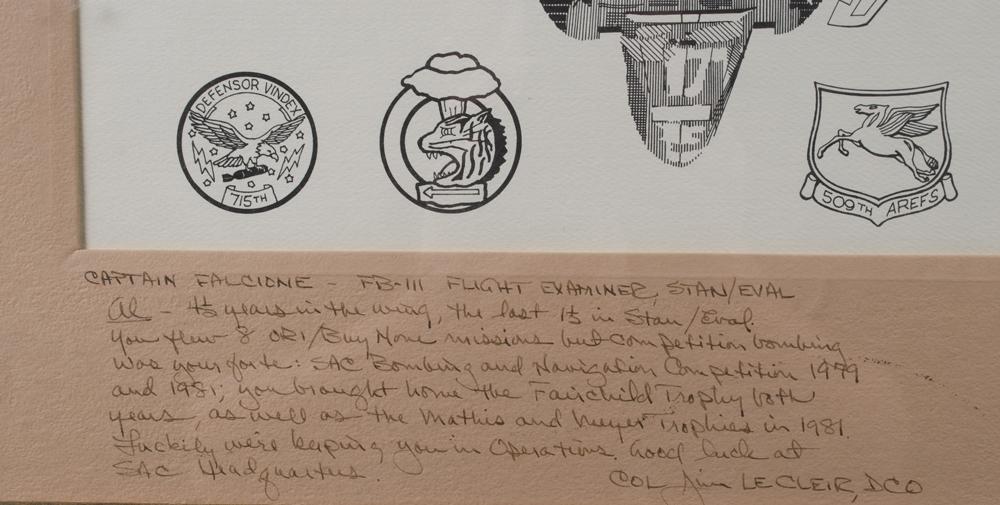 DEFENSOR VINDEX
715TH
509TH AREFS
CAPTAIN FALCIONE - FB-111 FLIGHT EXAMINER, STAN/EVAL
Al - 4½ years in the wing, the last 1½ in Stan/Eval.
You flew 8 ORI/Buy None missions but competition bombing
was your forte: SAC Bombing and Navigation Competition 1979
and 1981; you brought home the Fairchild Trophy both
years, as well as the Mathis and Meyer Trophies in 1981.
Luckily we're keeping you in Operations. Good luck at
SAC Headquarters.
COL Jim LECLEIR, DCO